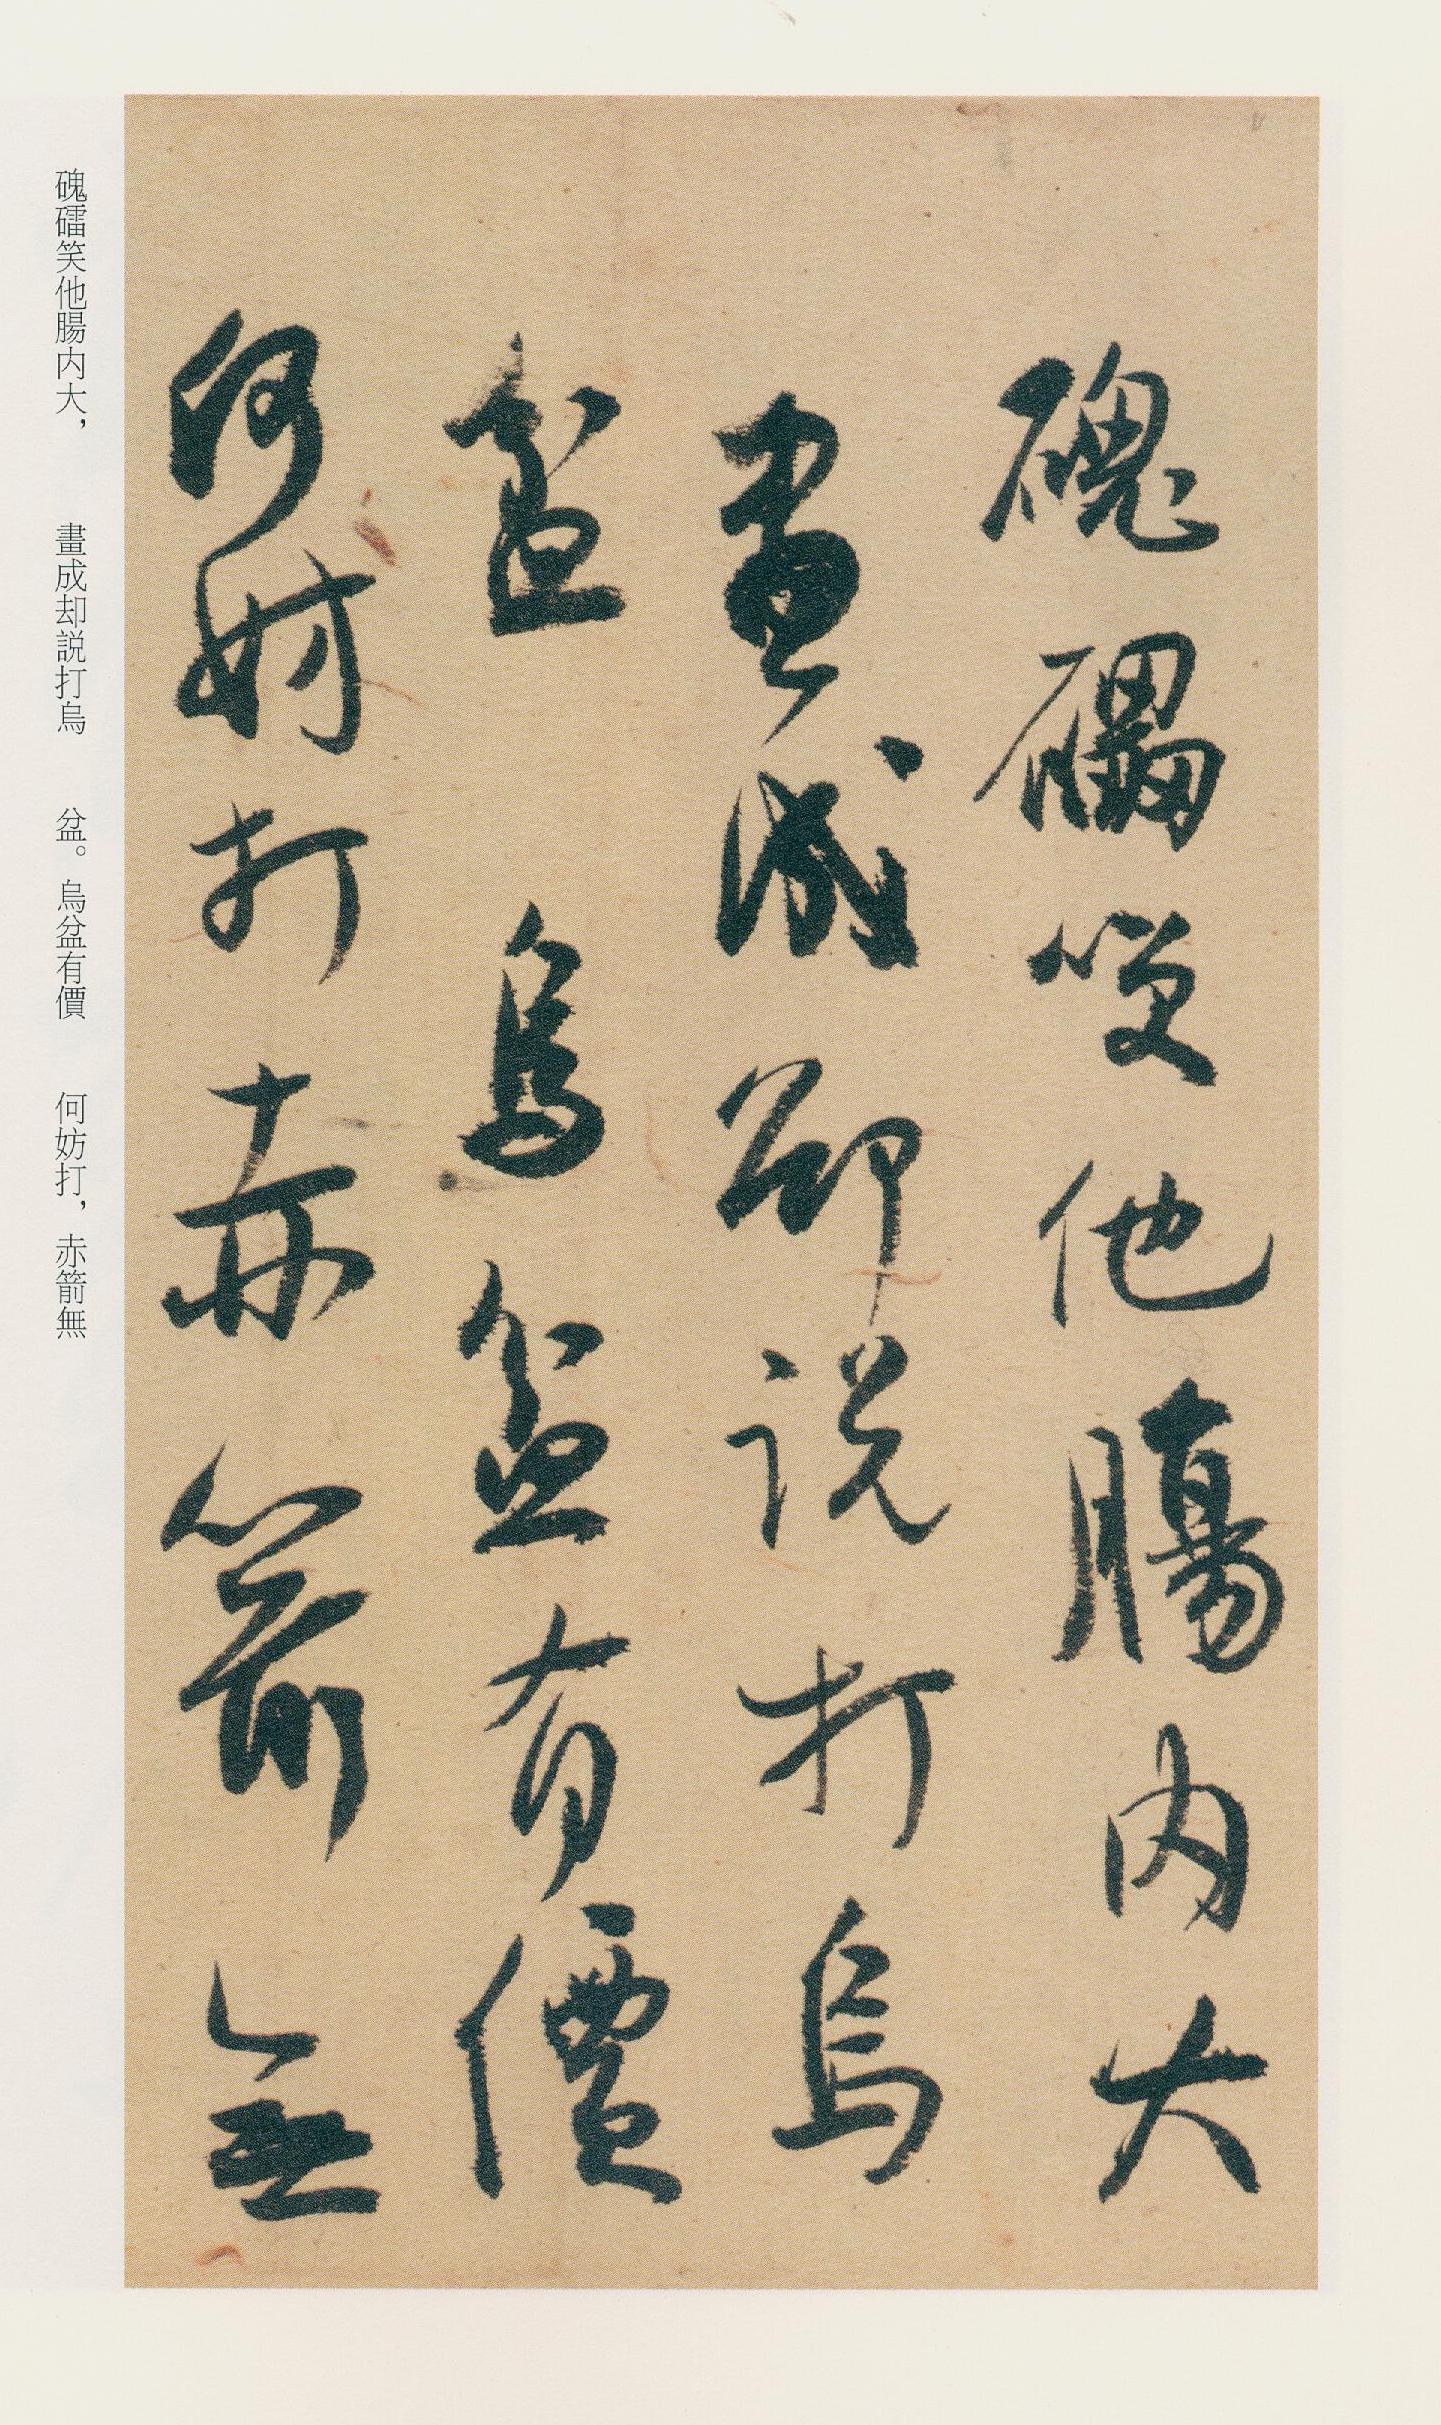 磈礌笑他腸内大
畫成却説打烏
盆烏盆有價
何妨打赤箭無
磈礌笑他腸内大，　畫成却説打烏　盆。烏盆有價　何妨打，赤箭無